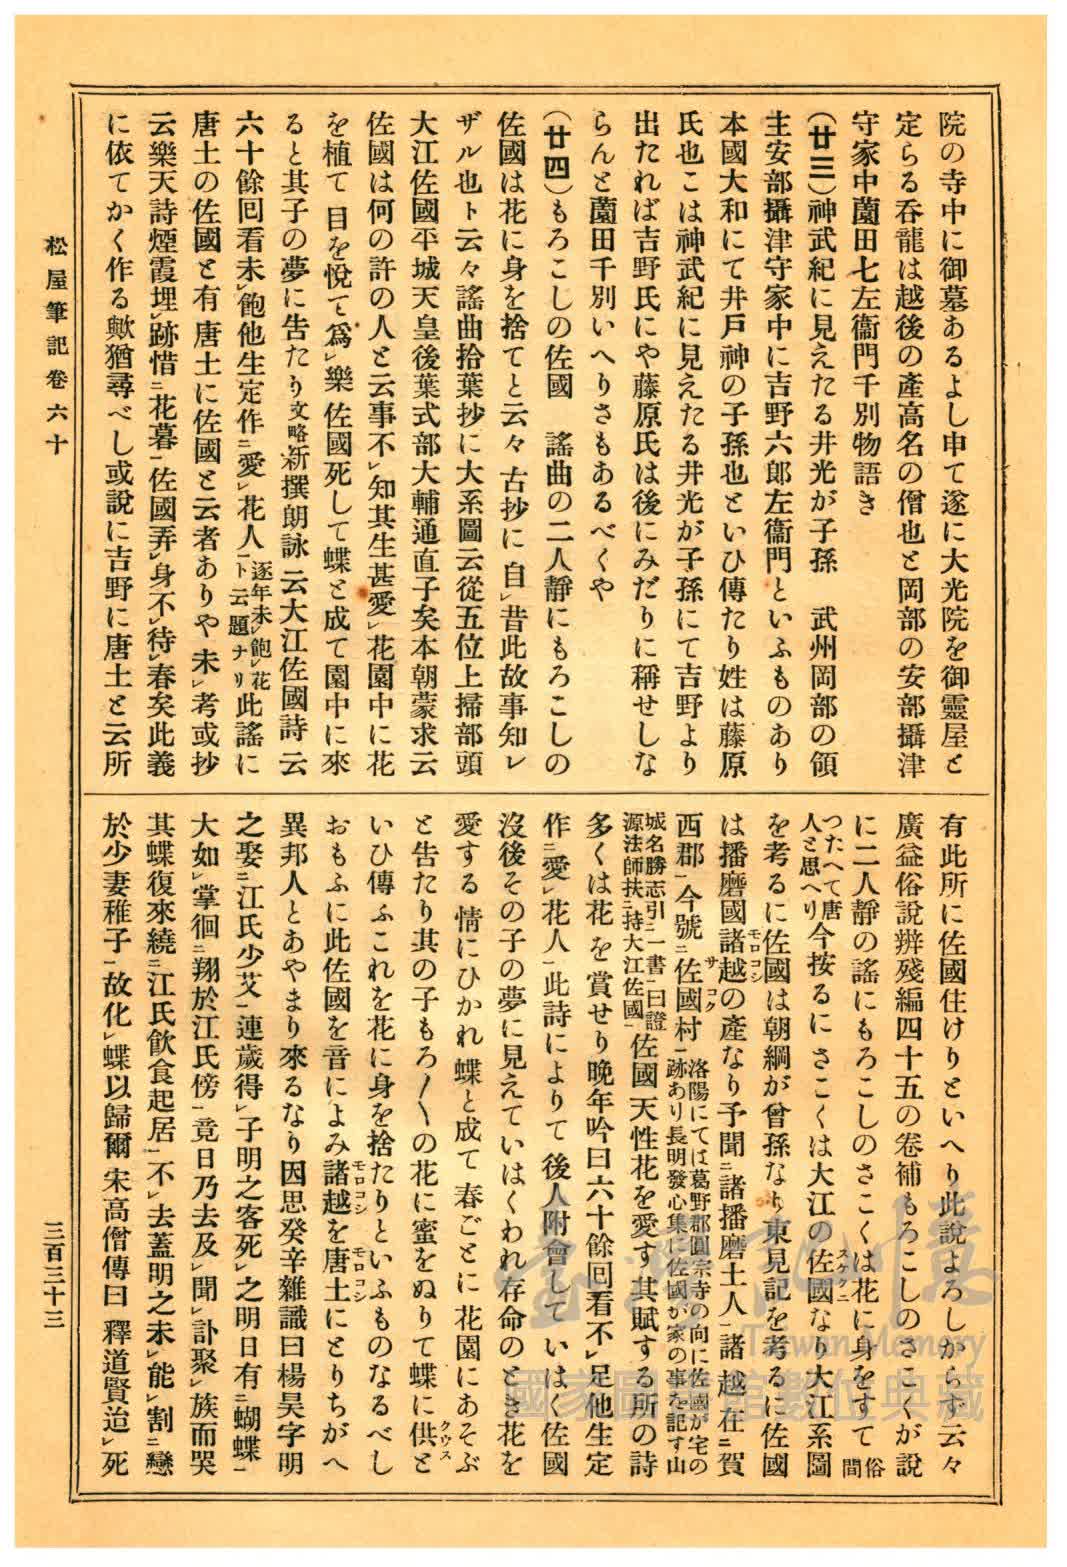 院の寺中に御墓あるよし申て遂に大光院を御靈屋と
定らる呑龍は越後の產高名の僧也と岡部の安部攝津
守家中薗田七左衞門千別物語き
(廿三)神武紀に見えたる井光が子孫　武州岡部の領
主安部攝津守家中に吉野六郎左衞門といふものあり
本國大和にて井戸神の子孫也といひ傳たり姓は藤原
氏也こは神武紀に見えたる井光が子孫にて吉野より
出たれば吉野氏にや藤原氏は後にみだりに稱せしな
らんと薗田千別いへりさもあるべくや
(廿四)もろこしの佐國　謠曲の二人靜にもろこしの
佐國は花に身を捨てと云々古抄に自レ昔此故事知レ
ザル也ト云々謠曲拾葉抄に大系圖云從五位上掃部頭
大江佐國平城天皇後葉式部大輔通直子矣本朝蒙求云
佐國は何の許の人と云事不レ知其生甚愛レ花園中に花
を植て目を悅て爲レ樂佐國死して蝶と成て園中に來
ると其子の夢に告たり文略新撰朗詠云大江佐國詩云
六十餘回看未レ飽他生定作二愛レ花人一逐年未レ飽レ花ト云題ナリ此謠に
唐土の佐國と有唐土に佐國と云者ありや未レ考或抄
云樂天詩煙霞埋レ跡惜二花暮一佐國弄レ身不レ待レ春矣此義
に依てかく作る歟猶尋べし或說に吉野に唐土と云所
有此所に佐國住けりといへり此說よろしからず云々
廣益俗說辨殘編四十五の卷補もろこしのさこくが說
に二人靜の謠にもろこしのさこくは花に身をすて俗間
つたへて唐人と思へり今按るにさこくは大江の佐國スケクニなり大江系圖
を考るに佐國は朝綱が曾孫なり東見記を考るに佐國
は播磨國諸越モロコシの產なり予聞二諸播磨土人一諸越在二賀
西郡一今號二佐國サコク村一洛陽にては葛野郡圓宗寺の向に佐國が宅の跡あり長明發心集に佐國が家の事を記す山
城名勝志引二一書一曰證源法師扶二持大江佐國一佐國天性花を愛す其賦する所の詩
多くは花を賞せり晩年吟曰六十餘回看不レ足他生定
作二愛レ花人一此詩によりて後人附會していはく佐國
沒後その子の夢に見えていはくわれ存命のとき花を
愛する情にひかれ蝶と成て春ごとに花園にあそぶ
と告たり其の子もろ〳〵の花に蜜をぬりて蝶に供クウスと
いひ傳ふこれを花に身を捨たりといふものなるべし
おもふに此佐國を音によみ諸越モロコシを唐土モロコシにとりちがへ
異邦人とあやまり來るなり因思癸辛雜識曰楊昊字明
之娶二江氏少艾一連歲得レ子明之客死レ之明日有二蝴蝶一
大如レ掌徊二翔於江氏傍一竟日乃去及レ聞レ訃聚レ族而哭
其蝶復來繞二江氏飮食起居一不レ去蓋明之未レ能レ割二戀
於少妻稚子一故化レ蝶以歸爾宋高僧傳曰釋道賢迨レ死
松屋筆記卷六十
三百三十三
臺灣記憶
Taiwan Memory
國家圖書館數位典藏